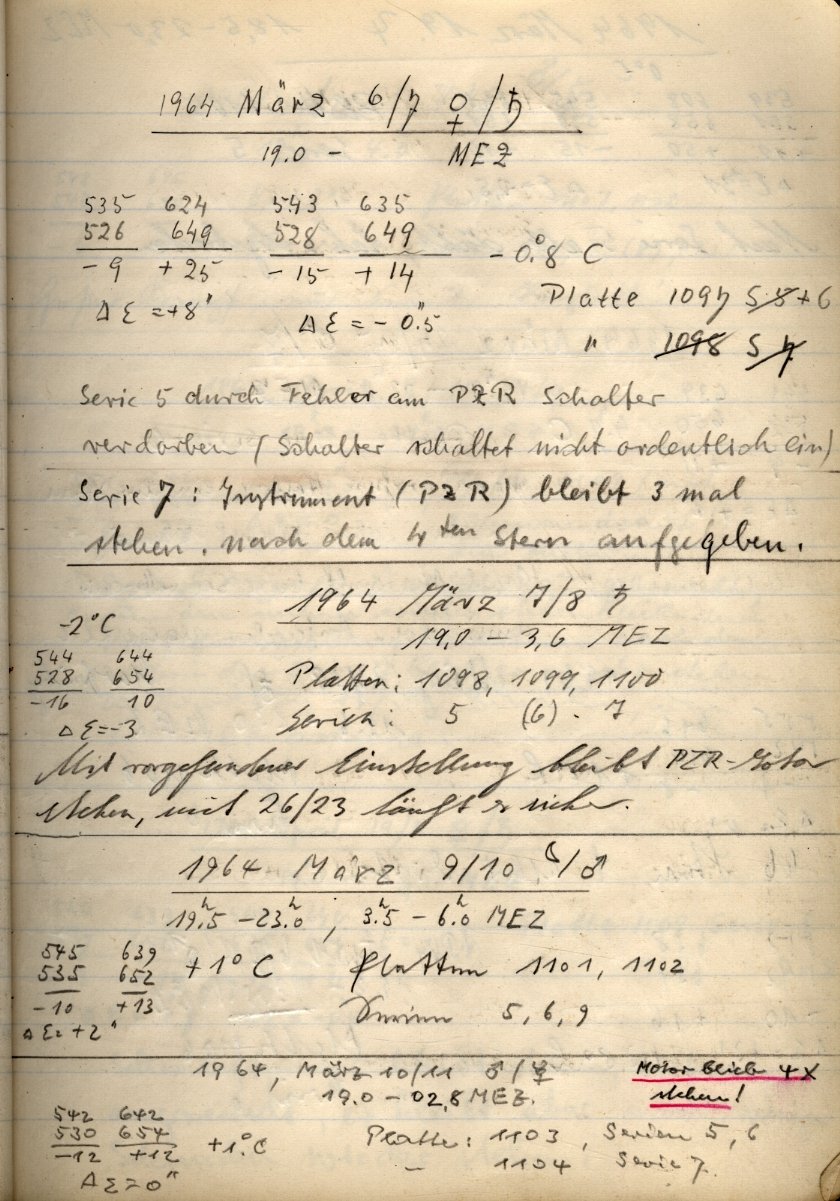 1964 März 6/7 ♀/♄
19.0 - MEZ
535 624 543 635
526 649 528 649
-9 +25 -15 +14 -0.°8 C
Δε = +8" Δε = -0."5
Platte 1097 S 5 + 6
" 1098 S 7
Serie 5 durch Fehler am PZR Schalter
verdorben (Schalter schaltet nicht ordentlich ein)
Serie 7 : Instrument (PZR) bleibt 3 mal
stehen. nach dem 4ten Stern aufgegeben.
1964 März 7/8 ♄
-2°C
19,0 - 3,6 MEZ
544 644
528 654
-16 10
Δε = -3
Platten: 1098, 1099, 1100
Serien: 5 (6) . 7
Mit vorgefundener Einstellung bleibt PZR-Motor
stehen, mit 26/23 läuft er sicher.
1964 März 9/10 ☾/♂
19.h5 - 23.h0, 3.h5 - 6.h0 MEZ
545 639
535 652 +1°C
-10 +13
Δε = +2"
Platten 1101, 1102
Serien 5, 6, 9
1964, März 10/11 ♂/☿
19.0 - 02,8 MEZ.
Motor blieb 4x
stehen!
542 642
530 654 +1.°C
-12 +12
Δε = 0"
Platte: 1103, Serien 5, 6
- 1104 Serie 7.